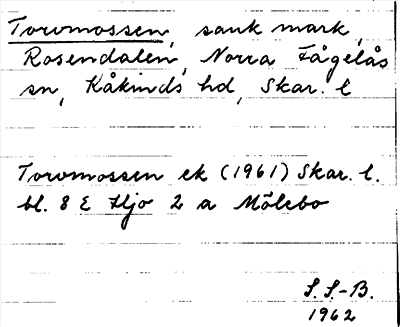 Torvmossen, sank mark,
Rosendalen, Norra Fågelås
sn, Kåkinds hd, Skar. l
Torvmossen ek (1961) Skar. l.
bl. 8 E Hjo 2 a Mölebo
S. S.-B.
1962